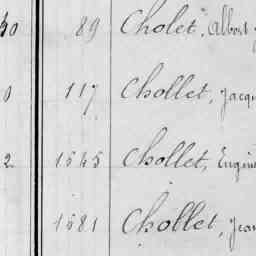 30 89 Cholet, Albert
0 117 Chollet, Jacqu
2 1545 Chollet, Eugène
1581 Chollet, Jean